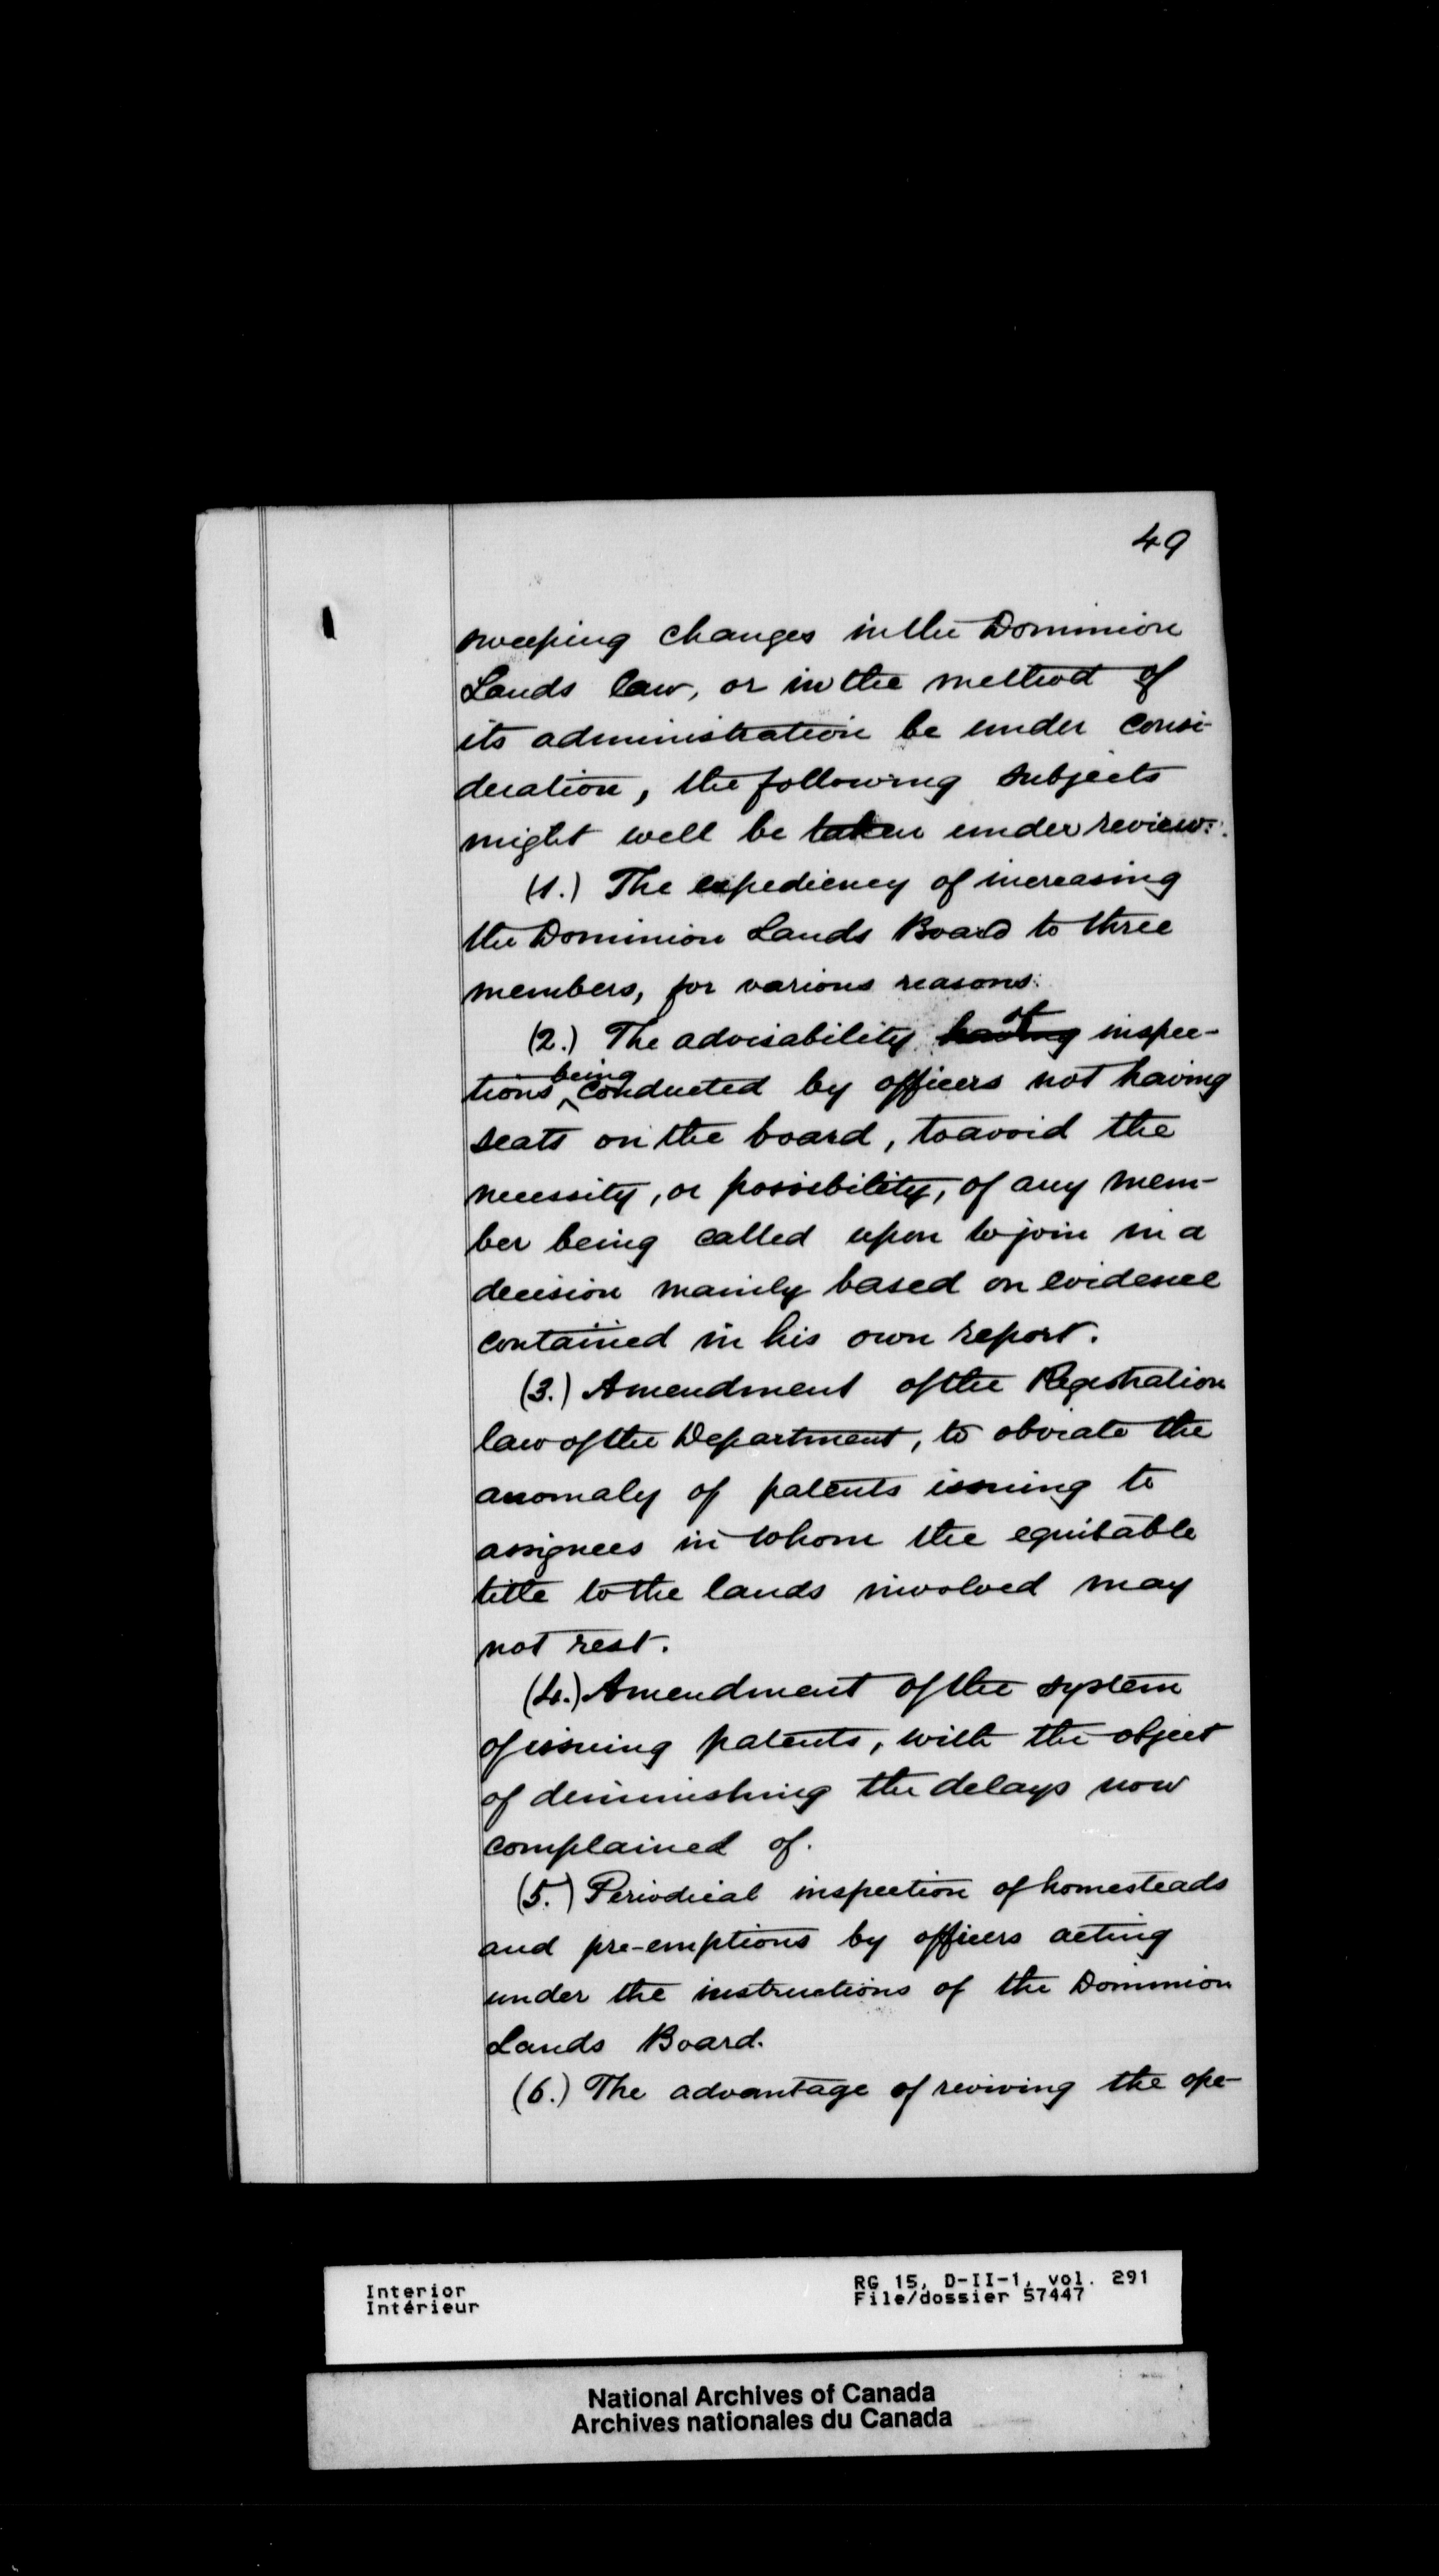 49
sweeping changes in the Dominion
Lands law, or in the method of
its administration be under consi-
deration, the following subjects
might well be taken under review:
(1.) The expediency of increasing
the Dominion Lands Board to three
members, for various reasons.
(2.) The advisability having of inspec-
tions being conducted by officers not having
seats on the board, to avoid the
necessity, or possibility, of any mem-
ber being called upon to join in a
decision mainly based on evidence
contained in his own report.
(3.) Amendment of the Registration
law of the Department, to obviate the
anomaly of patents issuing to
assignees in whom the equitable
title to the lands involved may
not rest.
(4.) Amendment of the system
of issuing patents, with the object
of diminishing the delays now
complained of.
(5.) Periodical inspection of homesteads
and pre-emptions by officers acting
under the instructions of the Dominion
Lands Board.
(6.) The advantage of reviving the ope-
Interior
Intérieur
RG 15, D-II-1, vol. 291
File/dossier 57447
National Archives of Canada
Archives nationales du Canada